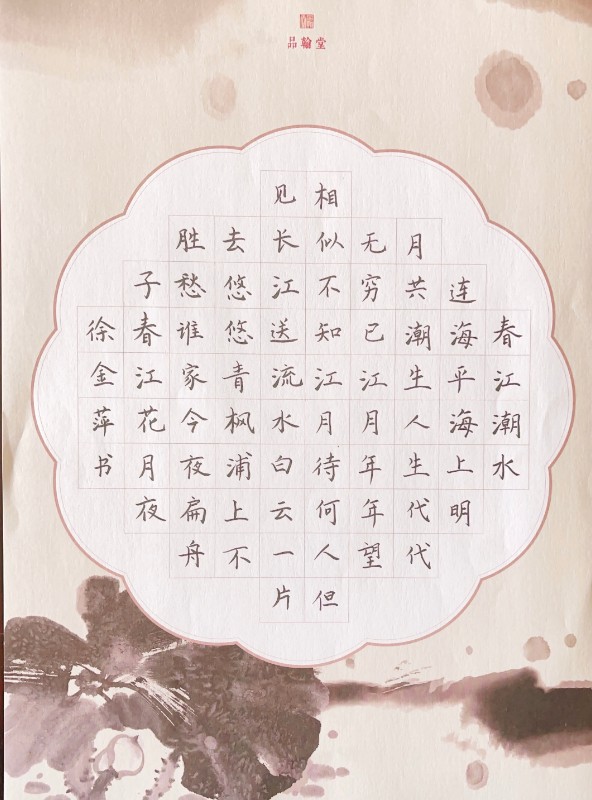 品翰堂
春江潮水
连海平海上明
月共潮生人生代代
无穷已江月年年望
相似不知江月待何人但
见长江送流水白云一片
去悠悠青枫浦上不
胜愁谁家今夜扁舟
子春江花月夜
徐金萍书